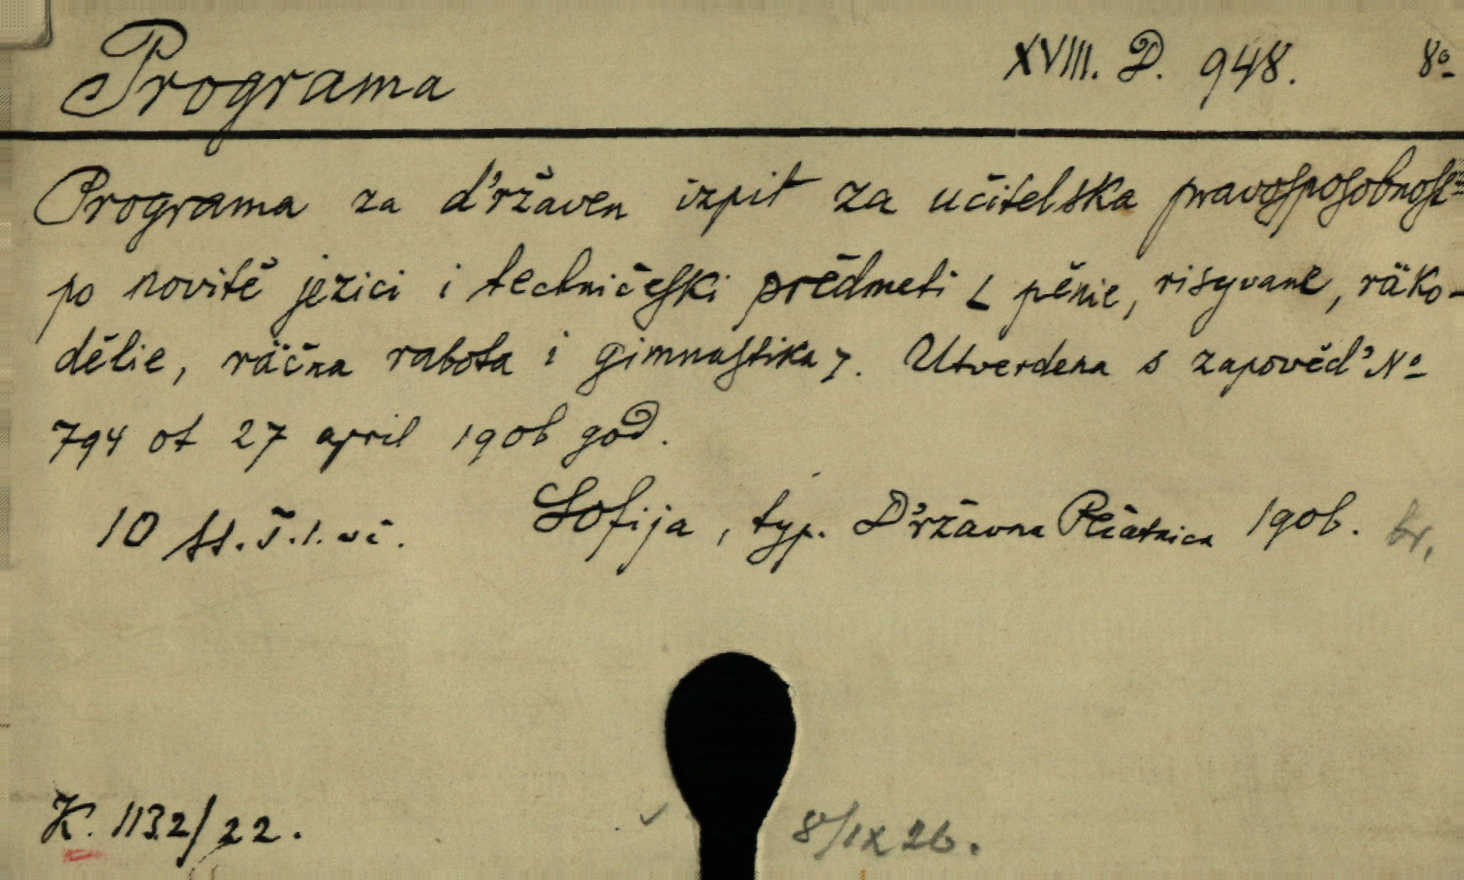 Programa XVIII. D. 948. 8º
Programa za d'ržaven izpit za učitelska pravosposobnost
po novitě jezici i techničeski prědmeti ( pěnie, risyvane, räko-
dělie, räčna rabota i gimnastika ). Utverdena s zapověd' Nº
794 ot 27 april 1906 god.
10 st.
Sofija, typ. D'ržavna Pečatnica 1906. br.
K. 1132/22.
8/IX 26.